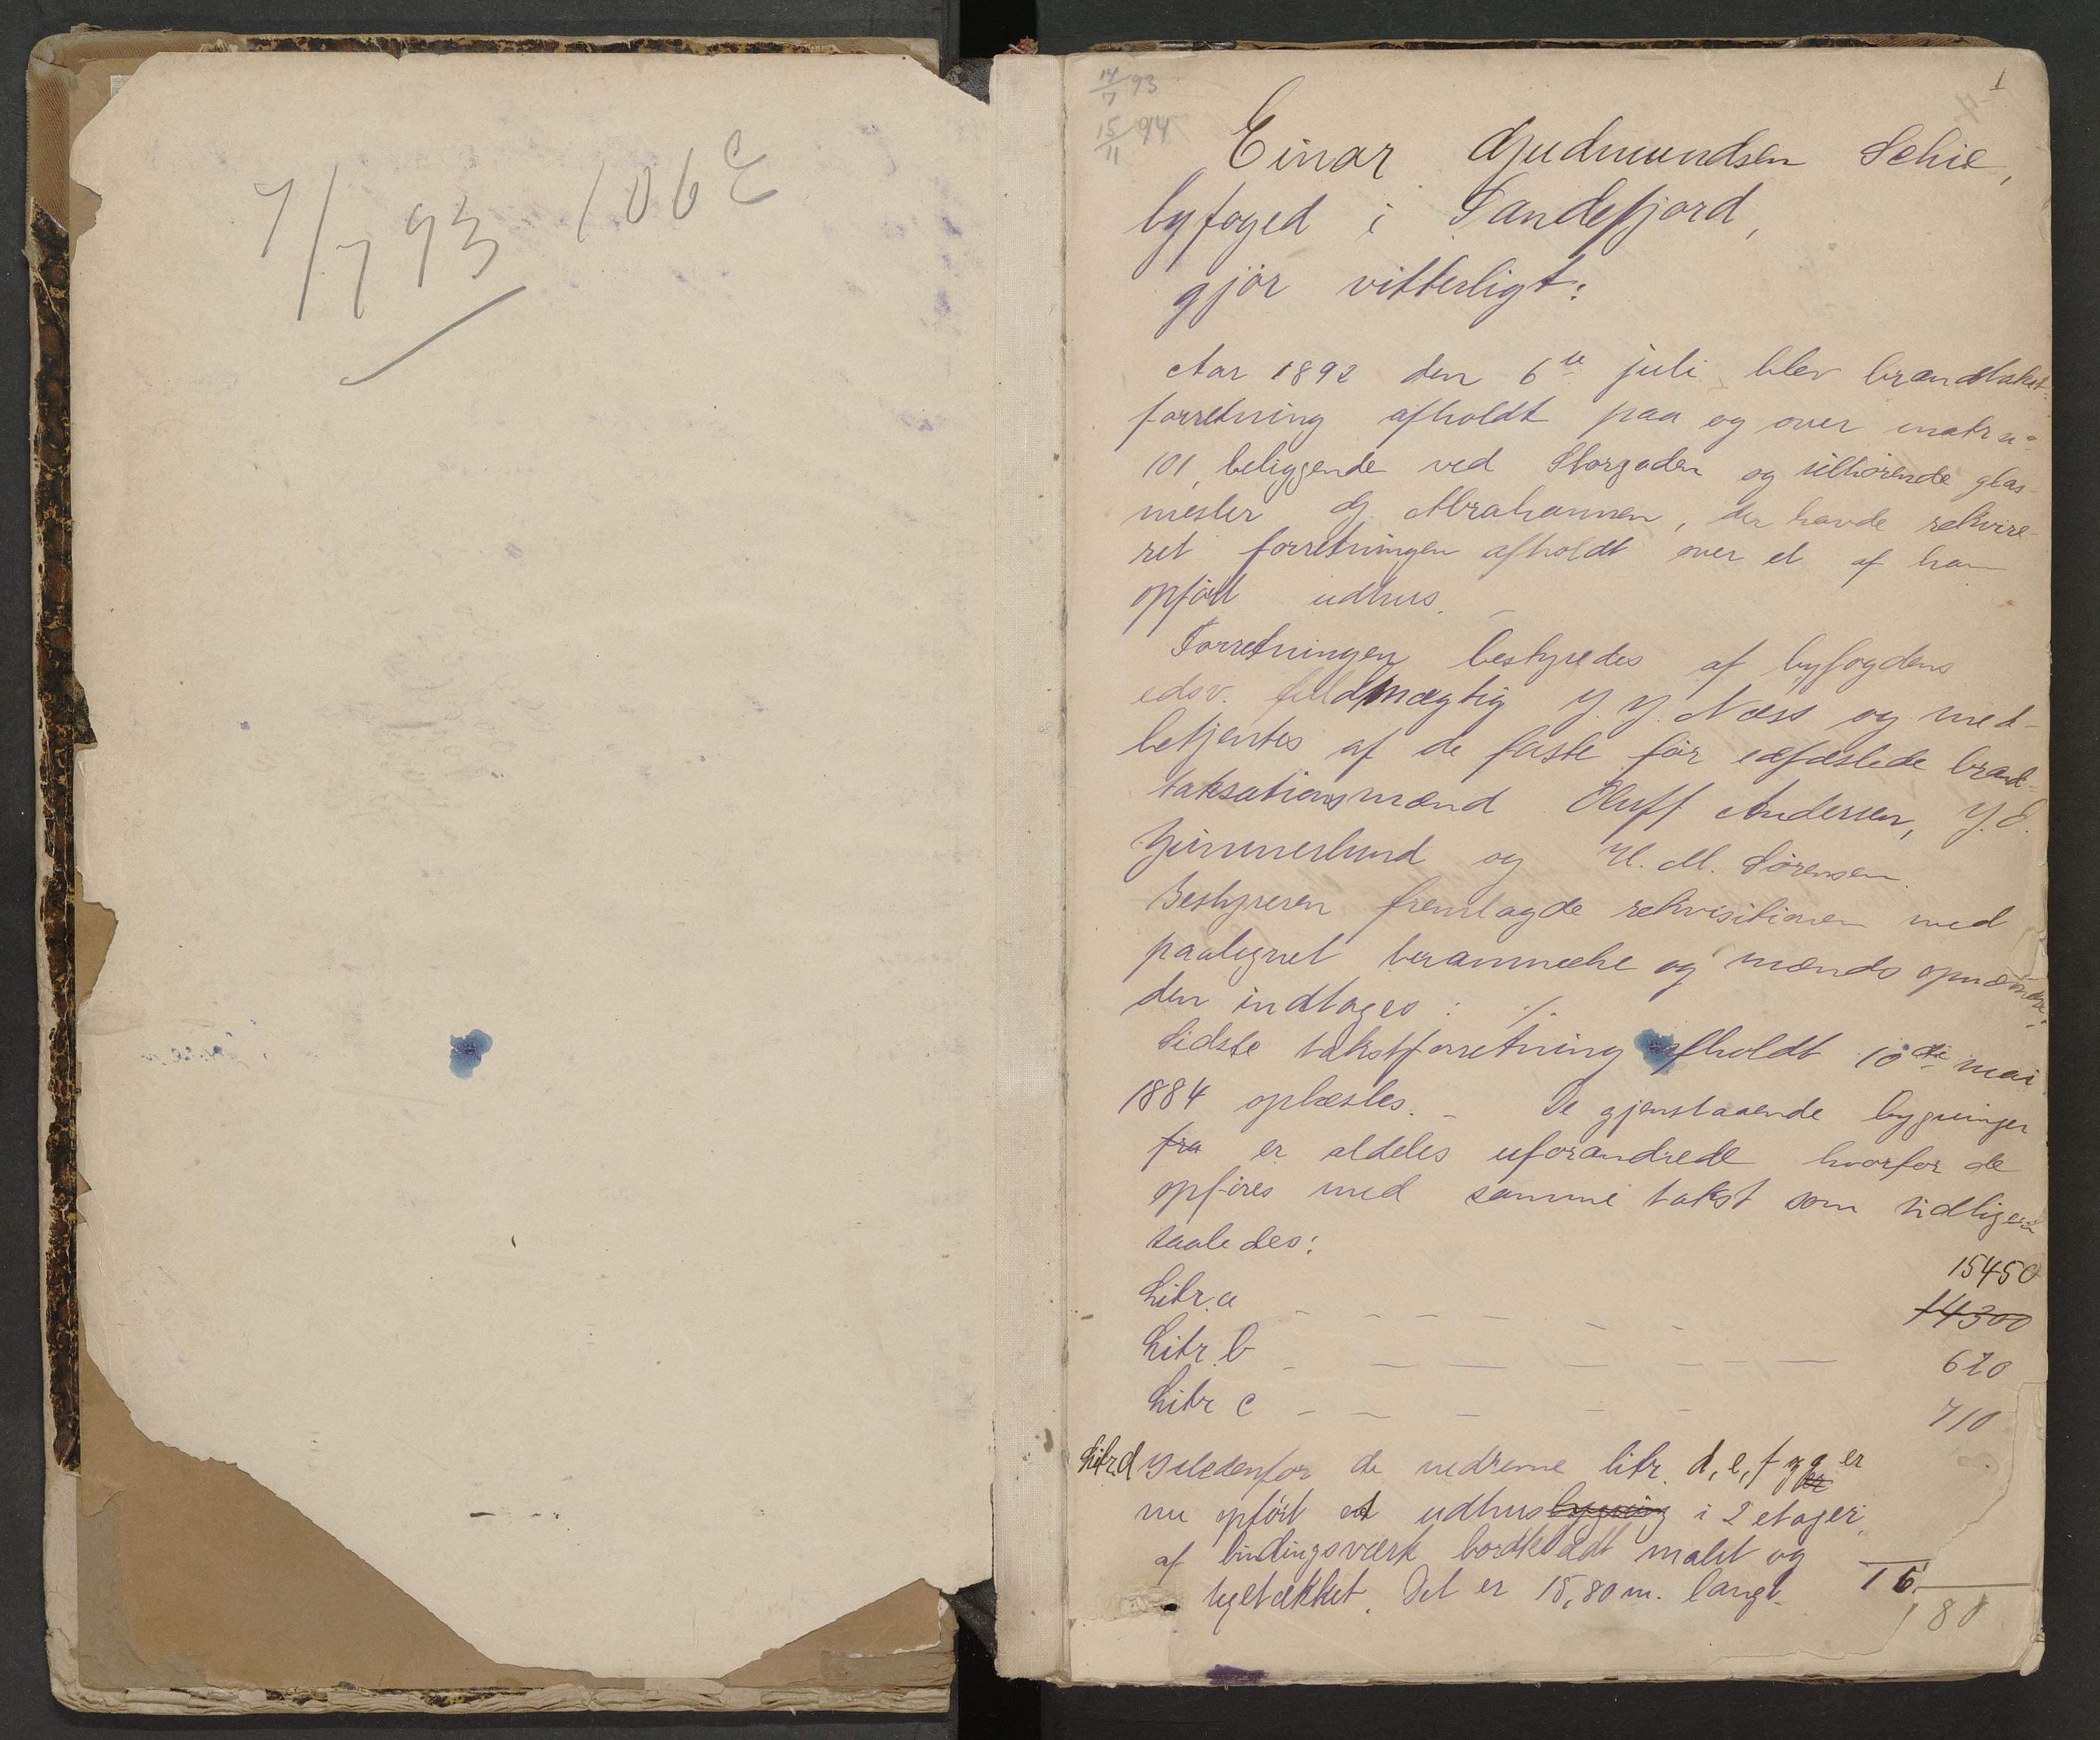 7/7 93 106 E
14/7 93
15/11 94
1
Einar Gudmundsen Schie,
byfoged i Sandefjord,
gjør vitterligt:
Aar 1892 den 6te juli blev brandtakst-
forretning afholdt paa og over matr no
101, beliggende ved Storgaden og tilhørende glas-
mester G. Abrahamsen, der havde rekvire-
ret forretningen afholdt over et af ham
opført udhus. –
Forretningen bestyredes af byfogdens
edsv. fuldmægtig J. J. Næss og med-
betjentes af de faste før edfæstede brand-
taksationsmænd Oluff Andersen, J. E.
Zimmerlund og H. M. Sørensen.
Bestyreren fremlagde rekvisitionen med
paategnet berammelse og mænds opnævnelse
den indtages : ./.
Sidste takstforretning afholdt 10de mai
1884 oplæstes. – De gjenstaaende bygninger
fra er aldeles uforandrede hvorfor de
opføres med samme takst som tidligere
saaledes:
15450
Litr. a – – – – – – 14300
Litr. b – – – – – – – 620
Litr c – – – – – 710
Litr. d Istedenfor de nedrevne litr. d, e, f og g er
er
nu opført et udhusbygning i 2 etager,
af bindingsværk bordklædt malet og
tegltækket. Det er 15,80 m. langt
16
80